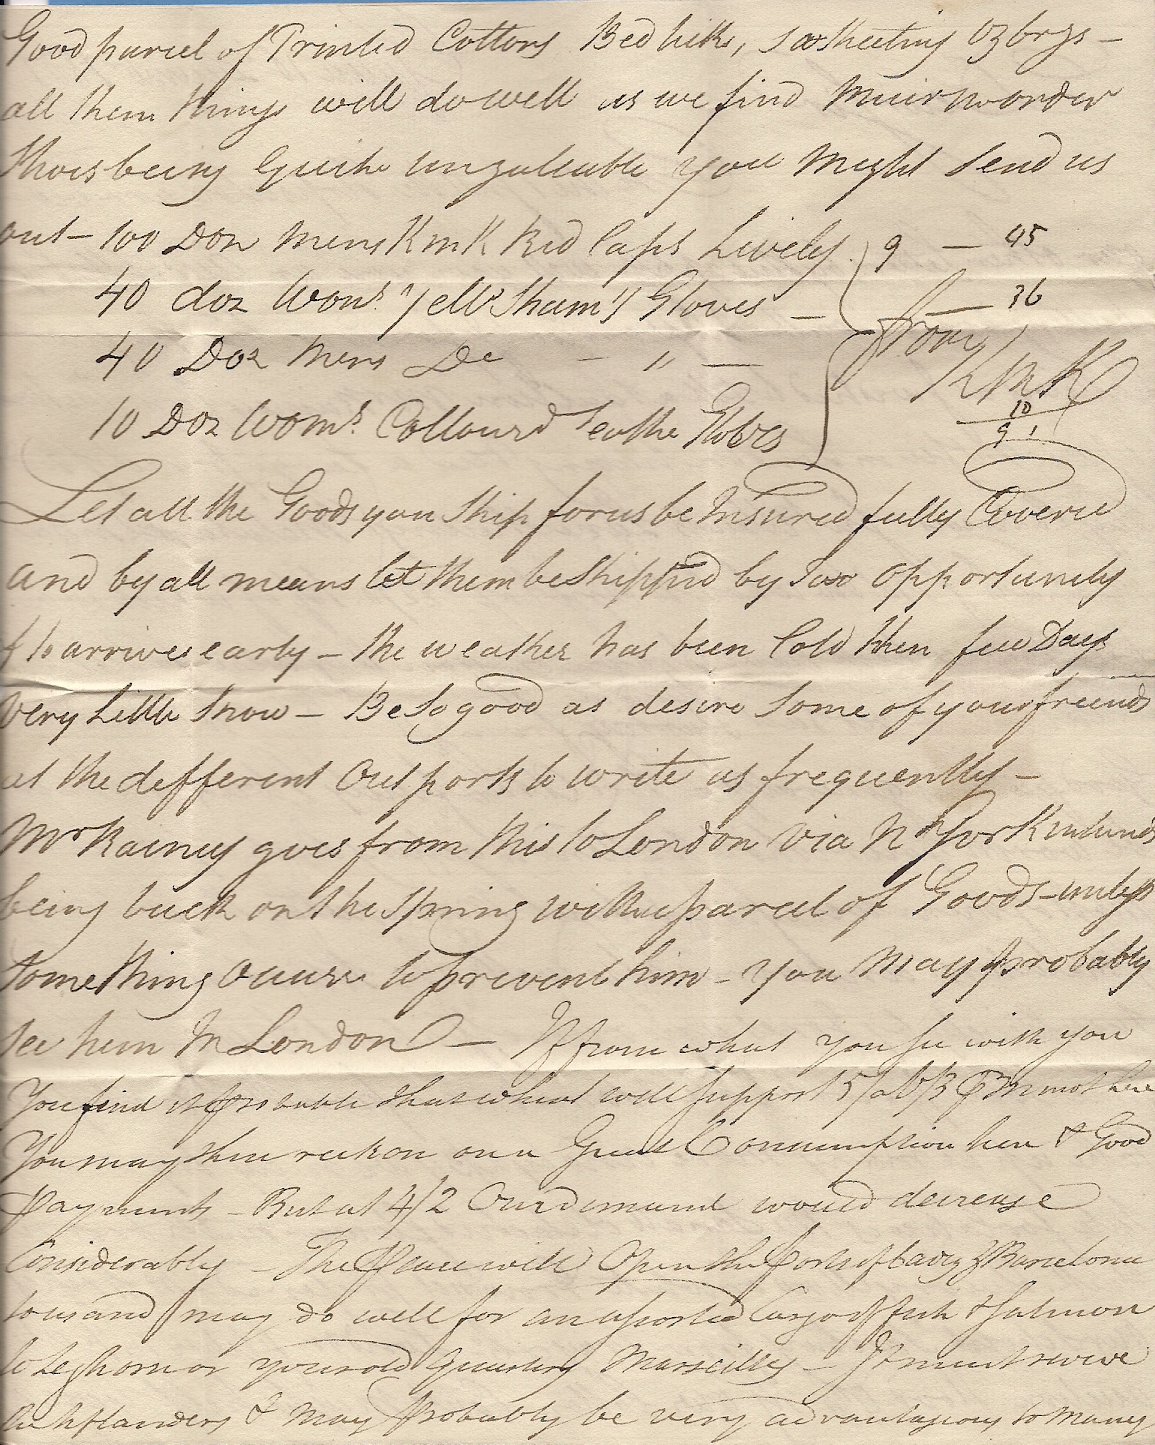 Good parcel of Printed Cottons Bed ticks, Sheeting Ozbrgs —
all them things will do well as we find
being Quite unsaleable you Might Send us
out — 100 Doz Mens K m K Kid Caps Lively 9 — 45
40 doz Wom.s Yell.w Sham.y Gloves — — 36
40 Doz Mens Do — " — from KMK
10 Doz Wom.s Collourd Leathe Gloves 10
91
Let all the Goods you Ship for us be Insured fully Coverd
and by all means let them be Shippd by opportunity
to arrive early — the weather has been Cold then few Days
very Little Snow — Be So good as desire Some of your friends
at the defferent Out ports to write us frequently —
Mr Rainey goes from this to London via N York intends
being back on the Spring with a parcel of Goods — unless
something occurs to prevent him — you May probably
see him In London — If from what you see with you
You find it probable that wheat will Support 5/
You may then reckon on a Great Consumption here & Good
payments — But at 4/2 Our demand would decrease
Considerably — The Peace will Open the Ports of Cadiz & Barcelona
to us and may do well for an assorted Cargo of fish & Salmon
to Leghorn or your old quarters Marseilles — It must revive
& may Probably be very advantageous to Many